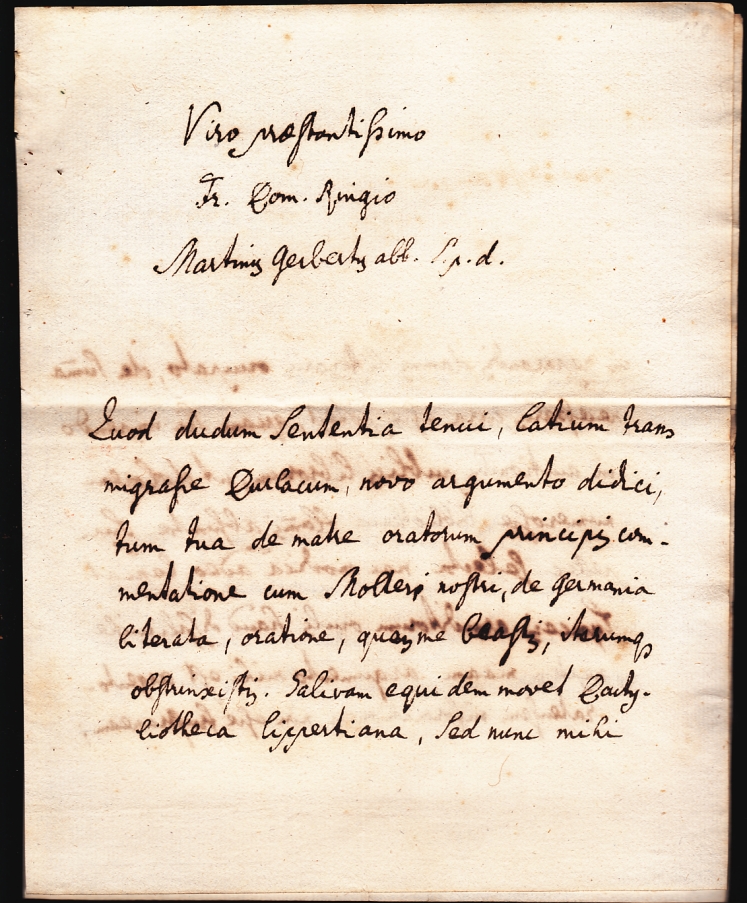 Viro præstantissimo
Fr. Dom. Ringio
Martinus Gerbertus abb. S. p. d.
Quod dudum Sententia tenui, Latium trans
migrasse Durlacum, novo argumento didici,
tum tua de matre oratorum principis com-
mentatione cum Molteri nostri, de Germania
literata, oratione, queis me beastis, iterumq
obstrinxistis. Salivam equidem movet Dacty-
liotheca Lippertiana, Sed nunc mihi